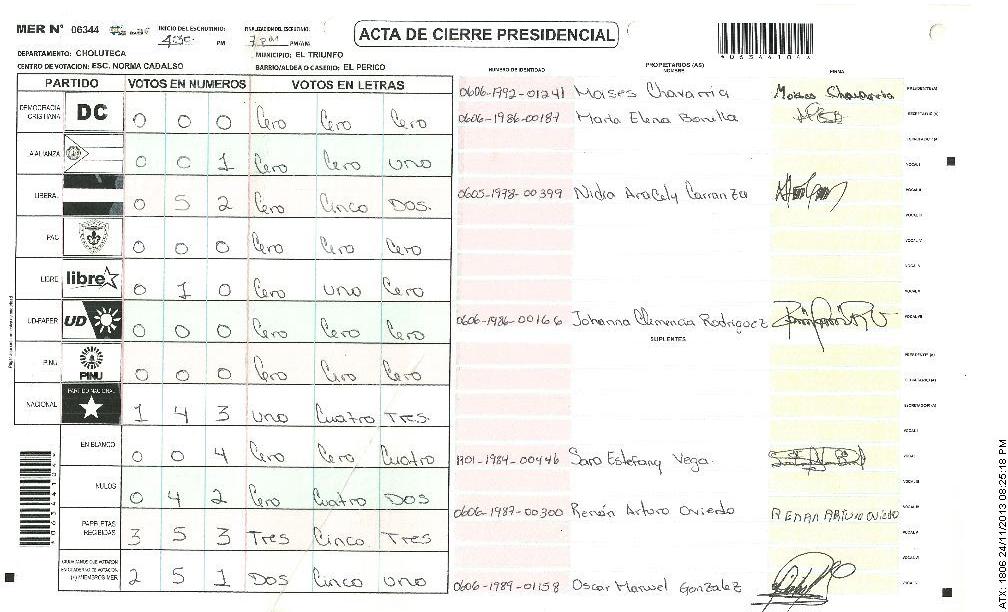 MER N° 06344 INICIO DEL ESCRUTINIO: 4:30 PM FINALIZACION DEL ESCRUTINIO: 7 PM PM/AM
ACTA DE CIERRE PRESIDENCIAL
DEPARTAMENTO: CHOLUTECA MUNICIPIO: EL TRIUNFO
CENTRO DE VOTACION: ESC. NORMA CADALSO BARRIO/ALDEA O CASERIO: EL PERICO
PARTIDO VOTOS EN NUMEROS VOTOS EN LETRAS
DEMOCRACIA CRISTIANA DC 0 0 0 Cero Cero Cero
ALIANZA 0 0 1 Cero Cero uno
LIBERAL 0 5 2 Cero Cinco Dos.
PAC 0 0 0 Cero Cero Cero
LIBRE libre 0 1 0 Cero uno Cero
UD-FAPER UD 0 0 0 Cero Cero Cero
PINU PINU 0 0 0 Cero Cero Cero
NACIONAL PARTIDO NACIONAL 1 4 3 uno Cuatro Tres.
EN BLANCO 0 0 4 Cero Cero Cuatro
NULOS 0 4 2 Cero Cuatro Dos
PAPELETAS RECIBIDAS 3 5 3 Tres Cinco Tres
CIUDADANOS QUE VOTARON EN CUADERNO DE VOTACION (+) MIEMBROS MER 2 5 1 Dos Cinco uno
NUMERO DE IDENTIDAD PROPIETARIOS (AS) NOMBRE FIRMA
0606-1992-01241 Moises Chavarria Moises Chavarria PRESIDENTE(A)
0606-1986-00187 Marta Elena Bonilla SECRETARIO (A)
ESCRUTADOR (A)
VOCAL I
0605-1978-00399 Nidia Aracely Carranza VOCAL II
VOCAL III
VOCAL IV
VOCAL V
VOCAL VI
0606-1986-00166 Johanna Clemencia Rodriguez VOCAL VII
SUPLENTES
PRESIDENTE (A)
SECRETARIO (A)
ESCRUTADOR (A)
VOCAL I
1701-1984-00446 Sara Estefany Vega. VOCAL II
VOCAL III
0606-1987-00300 Renán Arturo Oviedo RENAN ARTURO OVIEDO VOCAL IV
VOCAL V
VOCAL VI
0606-1989-01158 Oscar Manuel Gonzalez
ATX: 1806 24/11/2013 08:25:18 PM